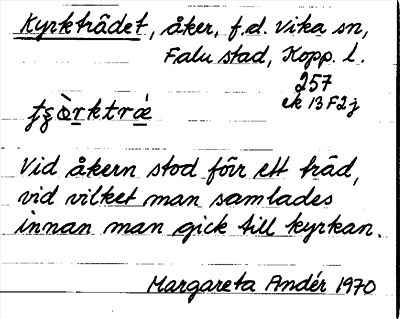 Kyrkträdet, åker, f.d. Vika sn,
Falu stad, Kopp. l.
257
ek 13F2j
Vid åkern stod förr ett träd,
vid vilket man samlades
innan man gick till kyrkan.
Margareta Andér 1970